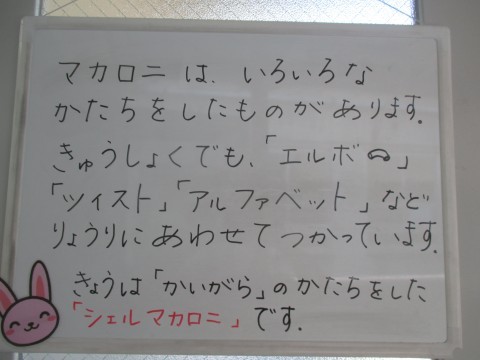 マカロニは、いろいろな
かたちをしたものがあります.
きゅうしょくでも、「エルボ」
「ツィスト」「アルファベット」など
りょうりにあわせてつかっています.
きょうは「かいがら」のかたちをした
「シェルマカロニ」です.